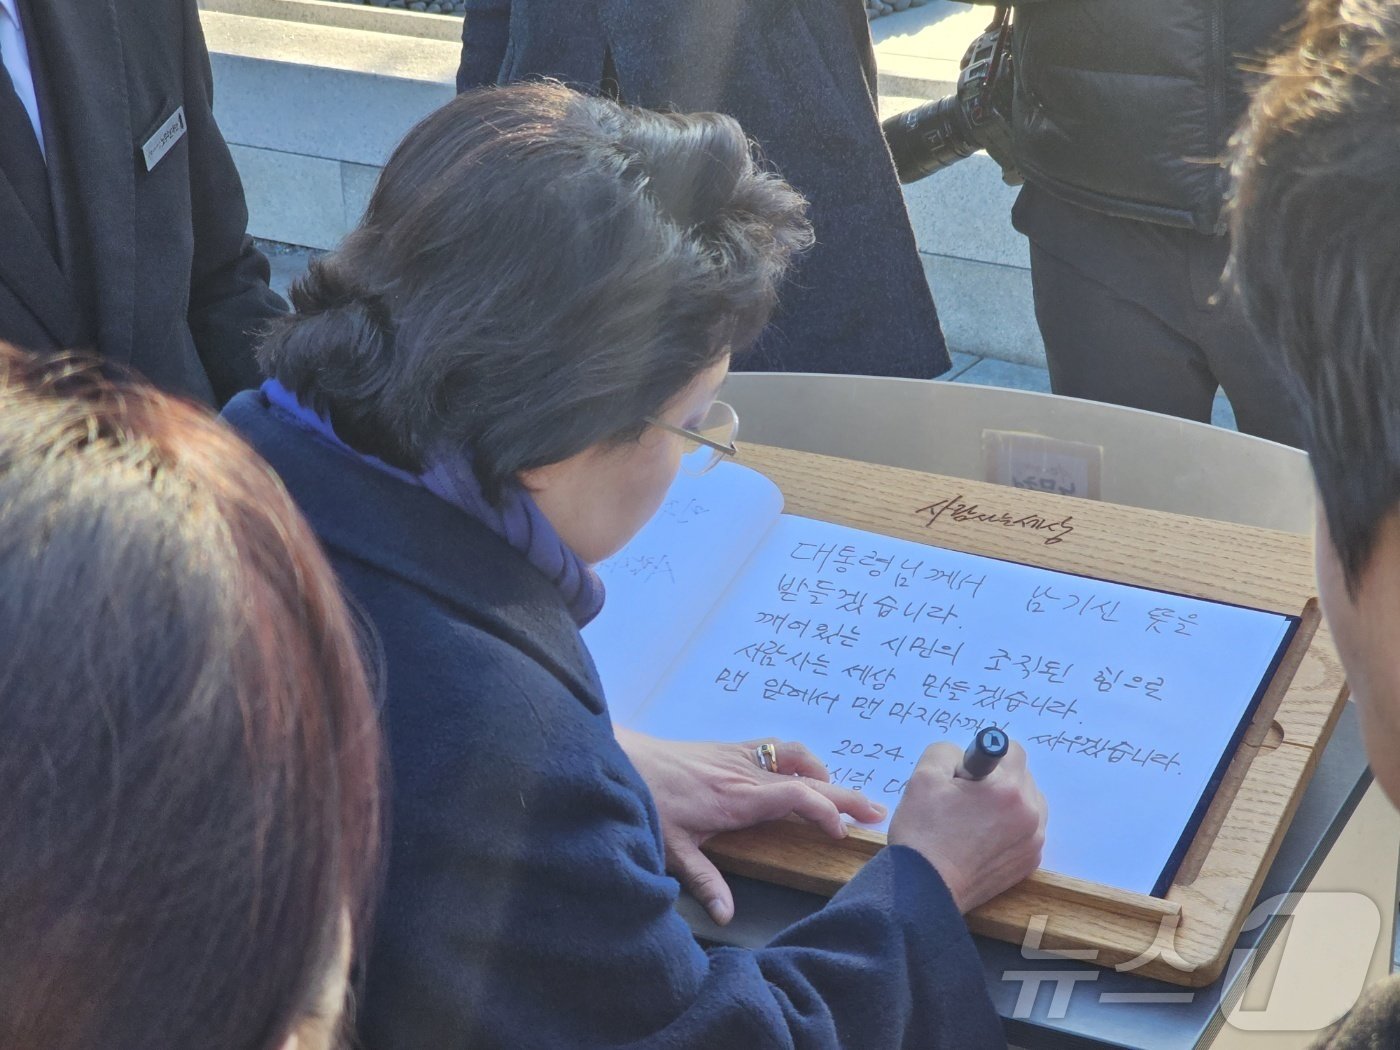 사람사는세상
대통령님께서 남기신 뜻을
받들겠습니다.
깨어있는 시민의 조직된 힘으로
사람사는 세상 만들겠습니다.
맨 앞에서 맨 마지막까지 싸우겠습니다.
2024.
뉴스1